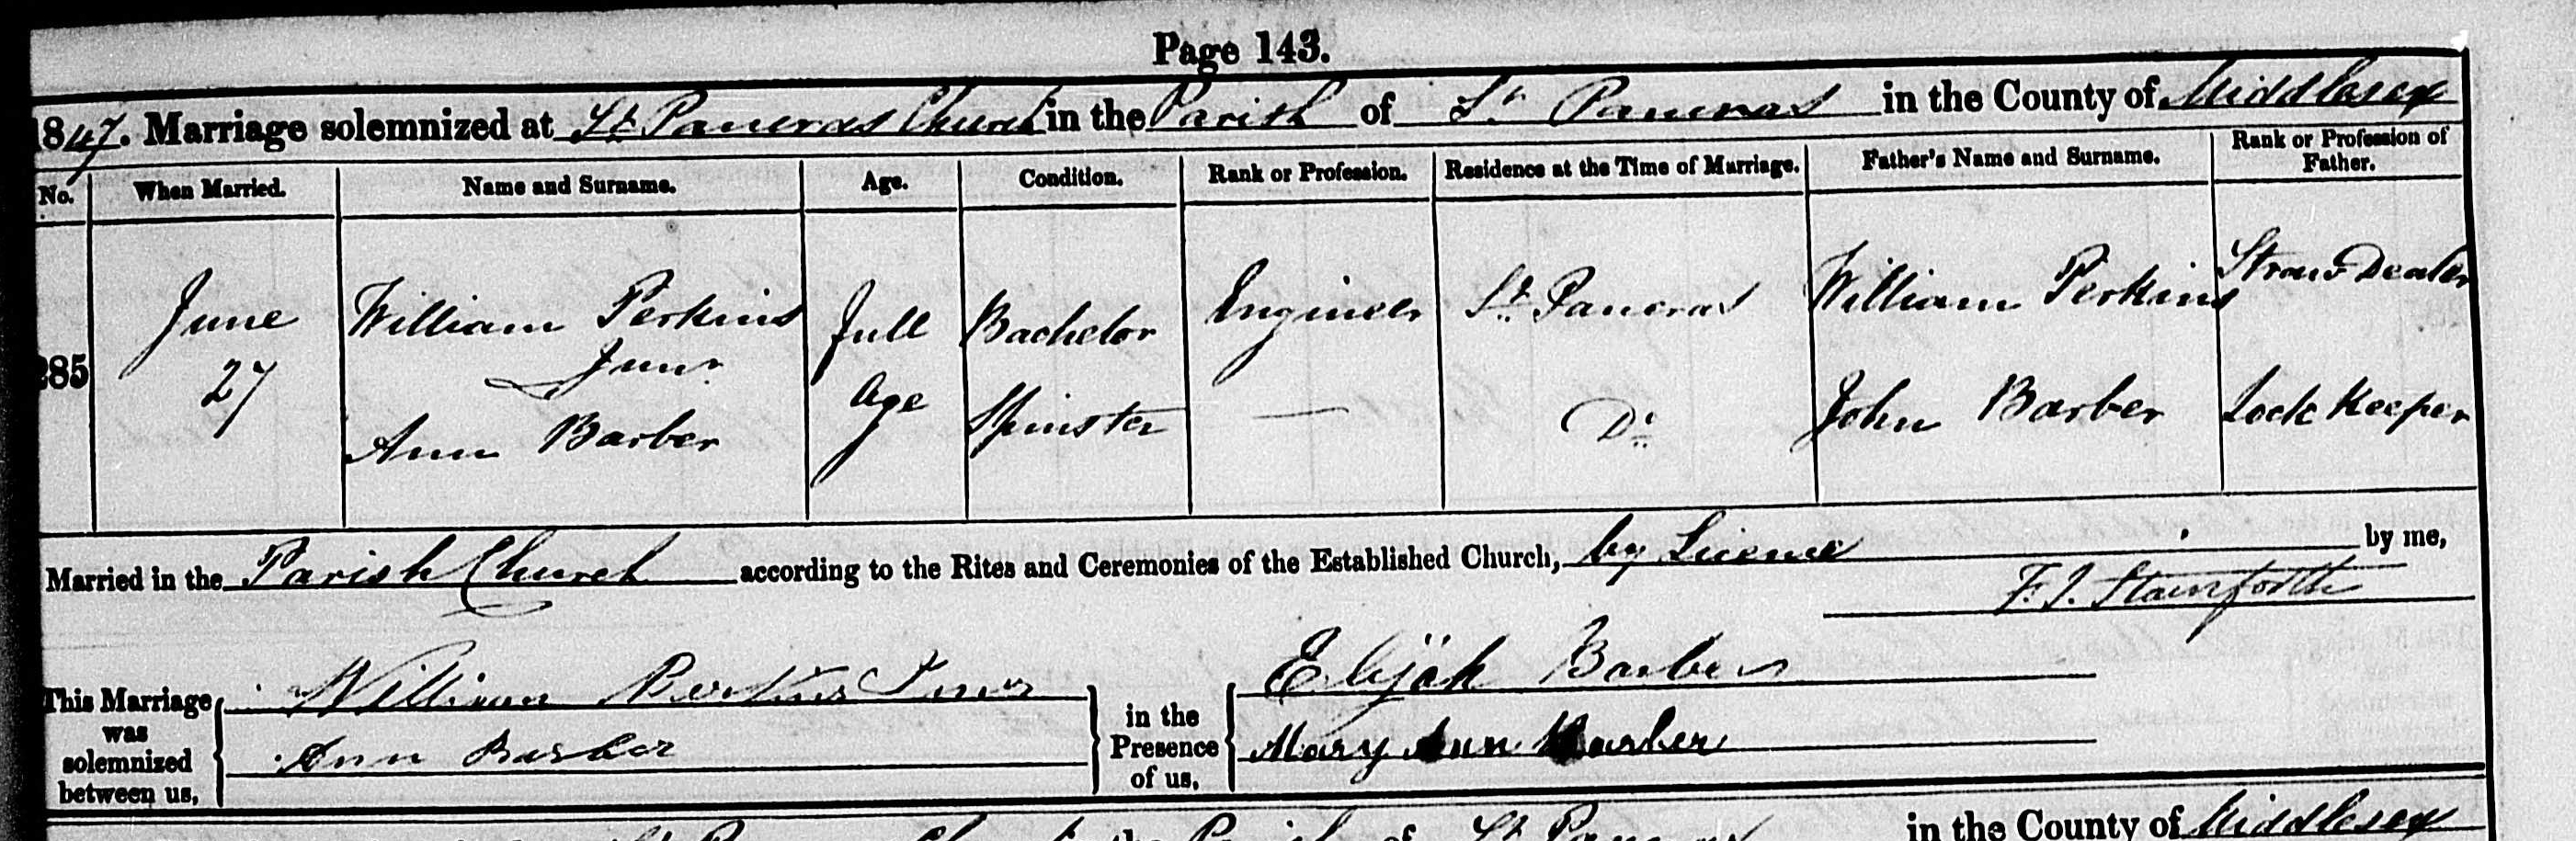 Page 143.
1847. Marriage solemnized at St. Pancras Church in the Parish of St. Pancras in the County of Middlesex
No. When Married. Name and Surname. Age. Condition. Rank or Profession. Residence at the Time of Marriage. Father's Name and Surname. Rank or Profession of Father.
285 June 27 William Perkins Junr. Full Age Bachelor Engineer St. Pancras William Perkins Straw Dealer
Ann Barber Spinster — Do. John Barber Lock Keeper
Married in the Parish Church according to the Rites and Ceremonies of the Established Church, by Licence by me,
F. J. Stainforth
This Marriage was solemnized between us, William Perkins Junr in the Presence of us, Elijah Barber
Ann Barber Mary Ann Barber
in the Parish of St. Pancras in the County of Middlesex